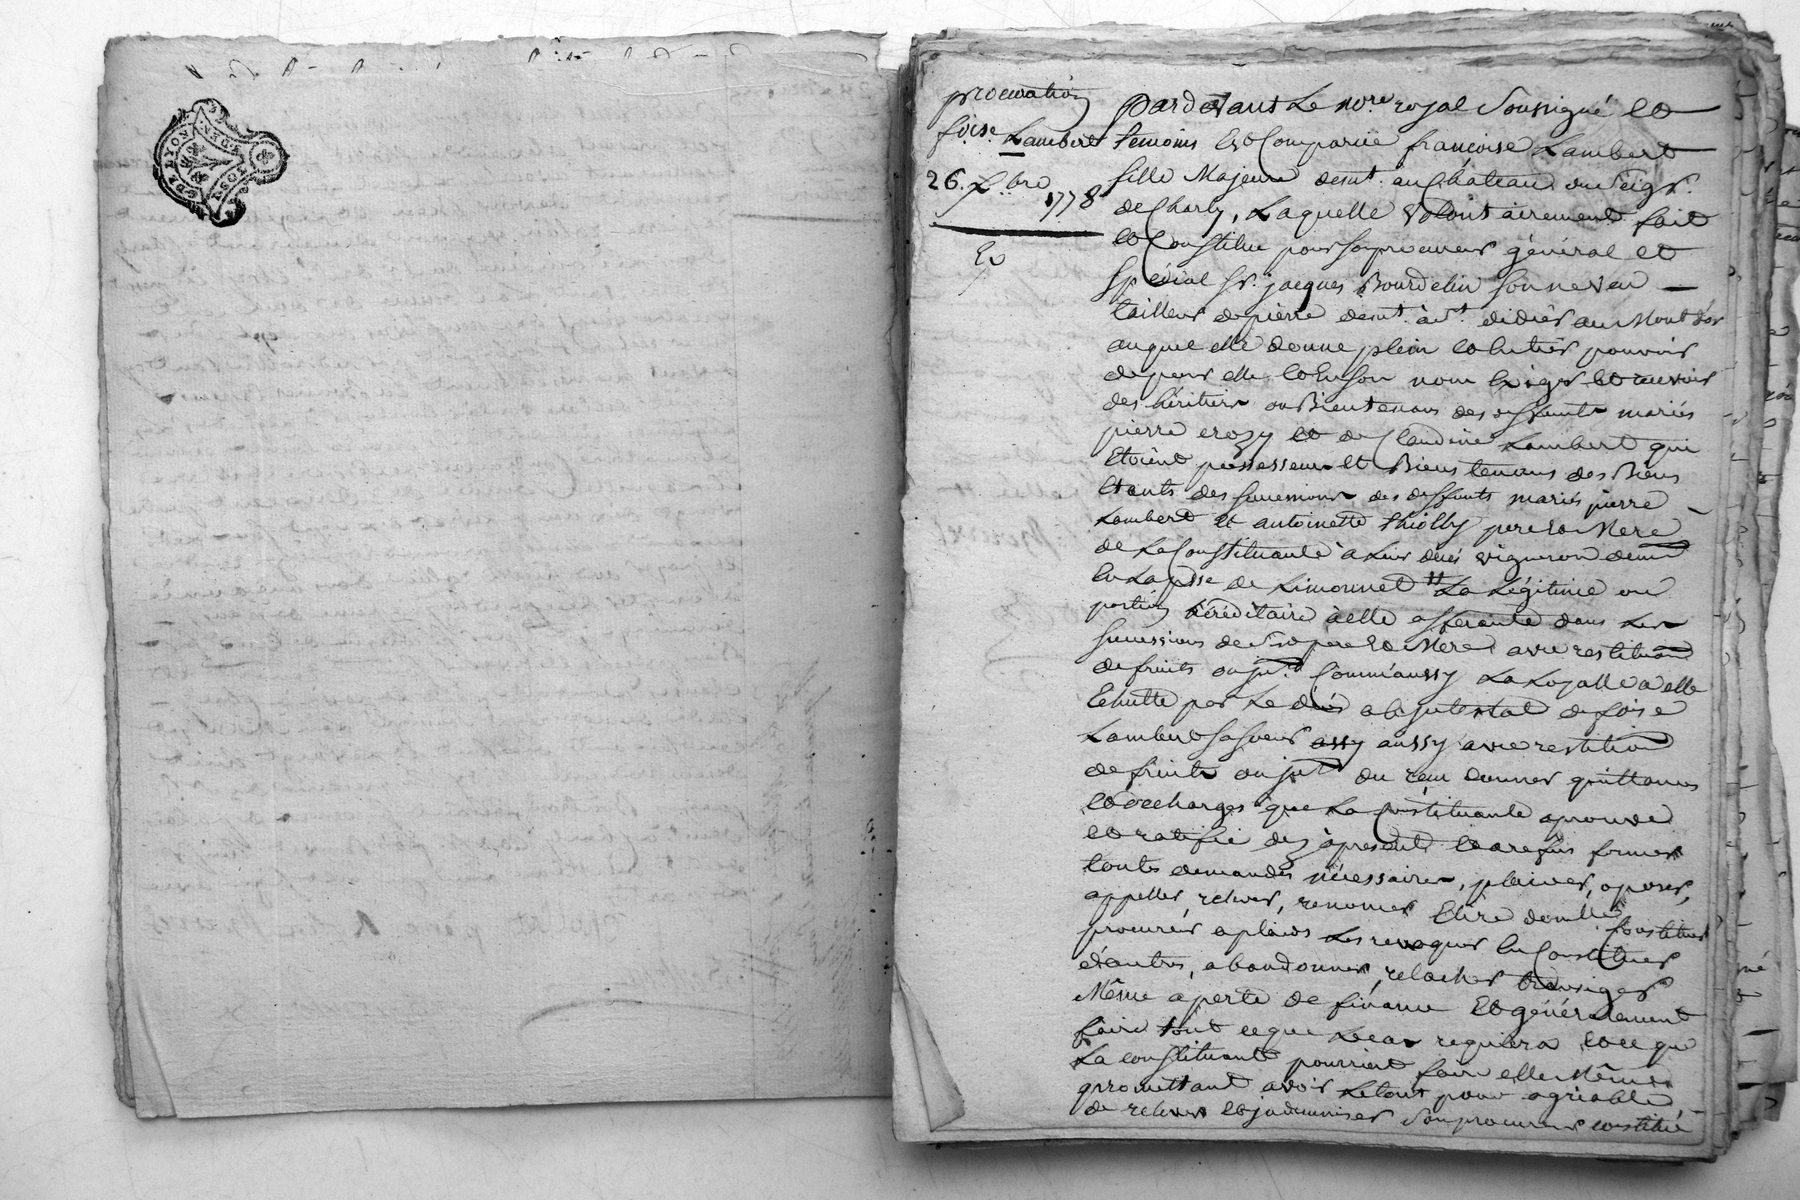 GEN. DE LYON
procuration
foise. Lambert
26. xbre
1778
Ex
Pardevant Le nore. royal Soussigné et
temoins Est Comparüe francoise Lambert
fille Majeure demt. au Château du Seigr.
de Charly, Laquelle volontairement fait
et Constitue pour son procureur général et
Spécial Sr. jacques Bourdelin son neveu
tailleur de pierre demt. à st. didier au Mont d'or
auquel elle donne plein et entier pouvoir
de pour elle et en son nom Exiger et recevoir
des héritiers ou Bientenans des deffunts mariés
pierre crozy et de Claudine Lambert qui
Etoient possesseurs et Biens tenans des Biens
Etants des successions des deffunts mariés pierre
Lambert et antoinette thiolly pere et Mere
de La Constituante à Leur décès vigneron demt
En La psse de Limonnet La Légitime ou
portion héréditaire à elle afferante dans Les
successions de sesd pere et Mere avec restitution
de fruits ou jnts. Comm'aussy La Loyalle a elle
Echutte par Le décès ab jntestat de foise
Lambert sa soeur assy aussy avec restition
de fruits ou jnts du reçu donner quittances
et décharges que La Constituante aprouve
et ratifie dez àprésent et a refus former
toutes demandes nécessaires, plaider, oposer,
appeller, relever, renoncer Elire domille Constituer
procureur à plaids Les revoquer En Constituer
d'autres, abandonner, relacher transiger
Même a perte de finance Et généralement
faire tout ce que Le cas requiera et ce que
La constituante pourroit faire elle Même
promettant avoir Le tout pour agréable,
de relever et jndemniser son procureur constitué